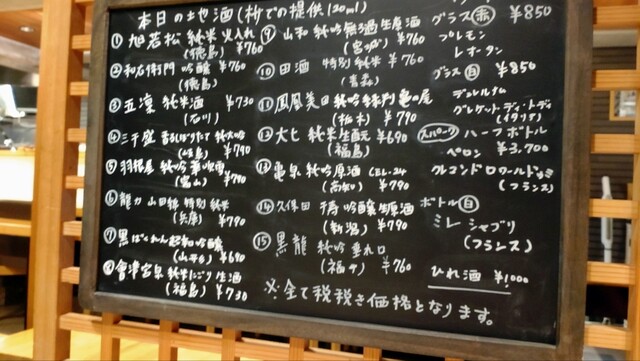 本日の地酒(枡での提供120ml)
① 旭若松 純米 火入れ
(徳島) ¥760
② 和右衛門 吟醸 ¥760
(徳島)
③ 五凛 純米酒 ¥730
(石川)
④ 三千盛 しぼりたて 純大吟
(岐阜) ¥790
⑤ 羽根屋 純吟
(富山) ¥790
⑥ 龍力 山田錦 特別純米
(兵庫) ¥790
⑦ 黒ばくれん 超辛吟醸
(山形) ¥690
⑧ 會津宮泉 純米にごり生酒
(福島) ¥730
⑨ 山和 純吟 無過生原酒
(宮城) ¥760
⑩ 田酒 特別純米 ¥760
(青森)
⑪ 鳳凰美田 純吟 亀の尾
(栃木) ¥790
⑫ 大七 純米生酛 ¥690
(福島)
⑬ 亀泉 純吟原酒 CEL-24
(高知) ¥790
⑭ 久保田 千寿 吟醸生原酒
(新潟) ¥790
⑮ 黒龍 純吟 垂れ口
(福井) ¥760
※全て税抜き価格となります。
グラス 赤 ¥850
プレモン
レオータン
グラス 白 ¥850
デュレルム
グレケット・ディ・トディ
(イタリア)
スパーク ハーフボトル
ペロン ¥3,700
クレマンドロワールドゥミ
(フランス)
ボトル 白
ミレ シャブリ
(フランス)
ひれ酒 ¥1,000